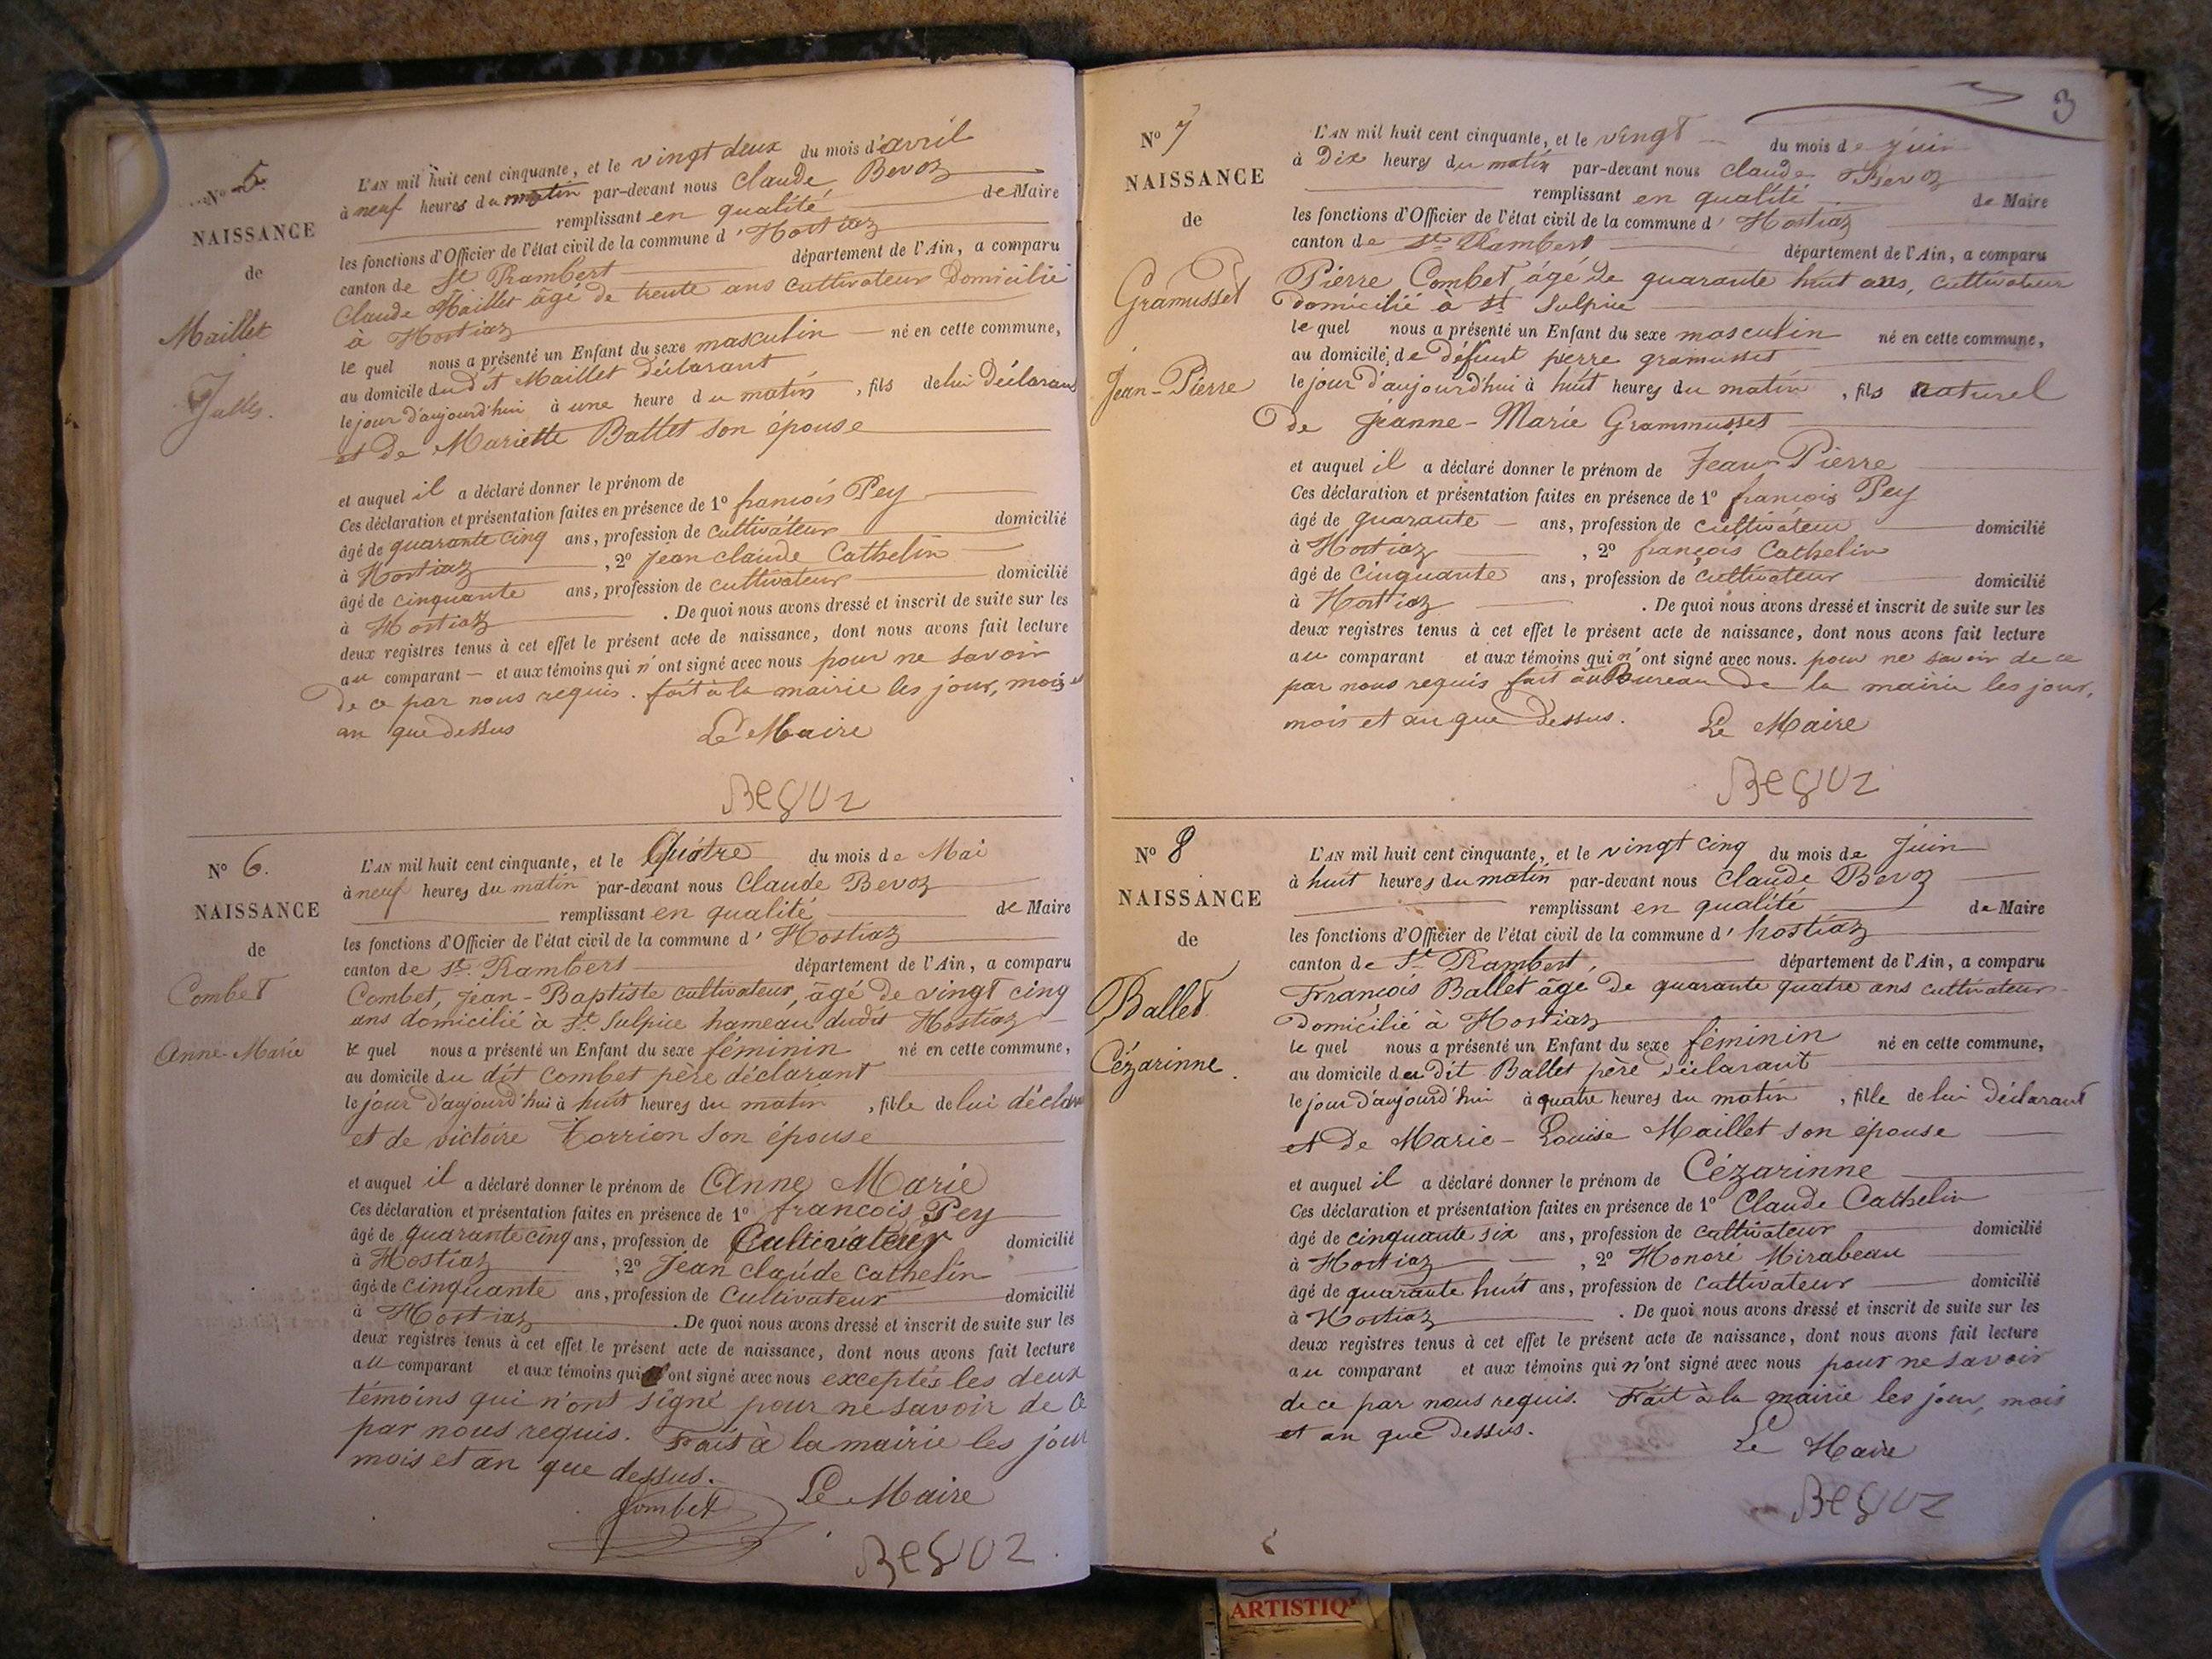 N° 5.
NAISSANCE
de
Maillet
Jules.
L'AN mil huit cent cinquante, et le vingt deux du mois d'avril
à neuf heures du matin par-devant nous Claude Bevoz
remplissant en qualité de Maire
les fonctions d'Officier de l'état civil de la commune d'Hostiaz
canton de St Rambert département de l'Ain, a comparu
Claude Maillet âgé de trente ans cultivateur Domicilié
à Hostiaz
le quel nous a présenté un Enfant du sexe masculin né en cette commune,
au domicile du dit Maillet déclarant
le jour d'aujourd'hui à une heure du matin, fils de lui Déclarant
et de Mariette Ballet son épouse
et auquel il a déclaré donner le prénom de
Ces déclaration et présentation faites en présence de 1° francois Pey
âgé de quarante cinq ans, profession de cultivateur domicilié
à Hostiaz, 2° Jean claude Cathelin
âgé de cinquante ans, profession de cultivateur domicilié
à Hostiaz. De quoi nous avons dressé et inscrit de suite sur les
deux registres tenus à cet effet le présent acte de naissance, dont nous avons fait lecture
au comparant et aux témoins qui n'ont signé avec nous pour ne savoir
de ce par nous requis. fait à la mairie les jour, mois et
an que dessus
Le Maire
BeVOZ
N° 6.
NAISSANCE
de
Combet
Anne-Marie
L'AN mil huit cent cinquante, et le Quatre du mois de Mai
à neuf heures du matin par-devant nous Claude Bevoz
remplissant en qualité de Maire
les fonctions d'Officier de l'état civil de la commune d'Hostiaz
canton de St. Rambert département de l'Ain, a comparu
Combet, Jean-Baptiste cultivateur, âgé de vingt cinq
ans domicilié à St Sulpice hameau dudit Hostiaz
le quel nous a présenté un Enfant du sexe féminin né en cette commune,
au domicile du dit Combet père déclarant
le jour d'aujourd'hui à huit heures du matin, fille de lui déclarant
et de victoire Torrion son épouse
et auquel il a déclaré donner le prénom de Anne Marie
Ces déclaration et présentation faites en présence de 1° francois Pey
âgé de quarante cinq ans, profession de Cultivateur domicilié
à Hostiaz, 2° Jean claude Cathelin
âgé de cinquante ans, profession de Cultivateur domicilié
à Hostiaz. De quoi nous avons dressé et inscrit de suite sur les
deux registres tenus à cet effet le présent acte de naissance, dont nous avons fait lecture
au comparant et aux témoins qui ont signé avec nous exceptés les deux
témoins qui n'ont signé pour ne savoir de ce
par nous requis. Fait à la mairie les jour
mois et an que dessus.
Combet Le Maire
BeVOZ
3
N° 7
NAISSANCE
de
Gramusset
Jean-Pierre
L'AN mil huit cent cinquante, et le vingt du mois de Juin
à Dix heures du matin par-devant nous Claude Bevoz
remplissant en qualité de Maire
les fonctions d'Officier de l'état civil de la commune d'Hostiaz
canton de St Rambert département de l'Ain, a comparu
Pierre Combet, âgé de quarante huit ans, cultivateur
domicilié à St Sulpice
le quel nous a présenté un Enfant du sexe masculin né en cette commune,
au domicile de défunt pierre gramusset
le jour d'aujourd'hui à huit heures du matin, fils naturel
de Jeanne-Marie Grammusset
et auquel il a déclaré donner le prénom de Jean Pierre
Ces déclaration et présentation faites en présence de 1° francois Pey
âgé de quarante ans, profession de cultivateur domicilié
à Hostiaz, 2° françois Cathelin
âgé de Cinquante ans, profession de cultivateur domicilié
à Hostiaz. De quoi nous avons dressé et inscrit de suite sur les
deux registres tenus à cet effet le présent acte de naissance, dont nous avons fait lecture
au comparant et aux témoins qui n'ont signé avec nous. pour ne savoir de ce
par nous requis fait au Bureau de la mairie les jour,
mois et an que Dessus. Le Maire
BeVOZ
N° 8
NAISSANCE
de
Ballet
Cézarinne.
L'AN mil huit cent cinquante, et le vingt cinq du mois de Juin
à huit heures du matin par-devant nous Claude Bevoz
remplissant en qualité de Maire
les fonctions d'Officier de l'état civil de la commune d'hostiaz
canton de St Rambert, département de l'Ain, a comparu
François Ballet âgé de quarante quatre ans cultivateur
Domicilié à Hostiaz
le quel nous a présenté un Enfant du sexe féminin né en cette commune,
au domicile du dit Ballet père déclarant
le jour d'aujourd'hui à quatre heures du matin, fille de lui Déclarant
et de Marie-Louise Maillet son épouse
et auquel il a déclaré donner le prénom de Cézarinne
Ces déclaration et présentation faites en présence de 1° Claude Cathelin
âgé de cinquante six ans, profession de cultivateur domicilié
à Hostiaz, 2° Honoré Mirabeau
âgé de quarante huit ans, profession de cultivateur domicilié
à Hostiaz. De quoi nous avons dressé et inscrit de suite sur les
deux registres tenus à cet effet le présent acte de naissance, dont nous avons fait lecture
au comparant et aux témoins qui n'ont signé avec nous pour ne savoir
de ce par nous requis. Fait à la mairie les jour, mois
et an que Dessus.
Le Maire
BeVOZ
ARTISTIQ